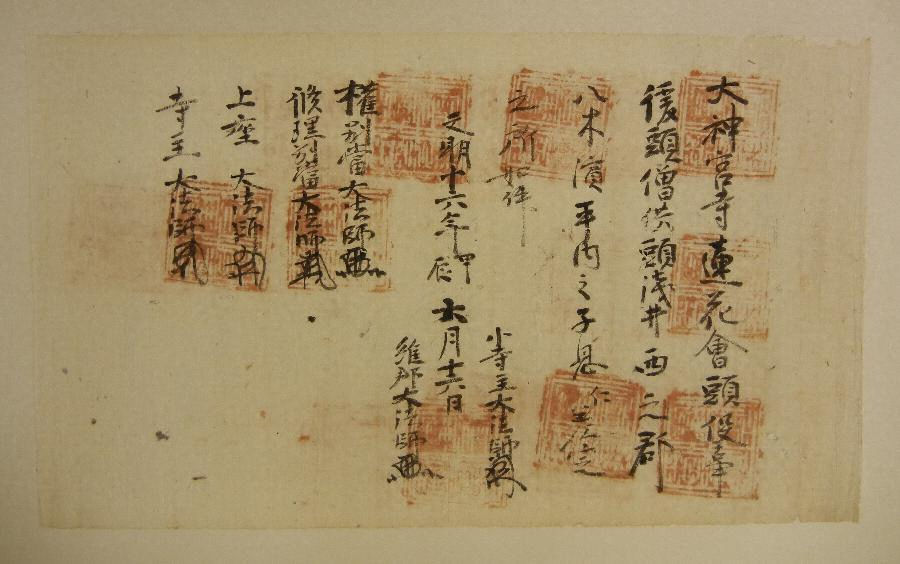 大神宮寺蓮花會頭役事
後頭僧供頭浅井西之郡
八木濱平内之子息仁
之所如件
文明十六年甲辰六月十六日
小寺主大法師
維那大法師
権別當大法師
修理別當大法師
上座大法師
寺主大法師